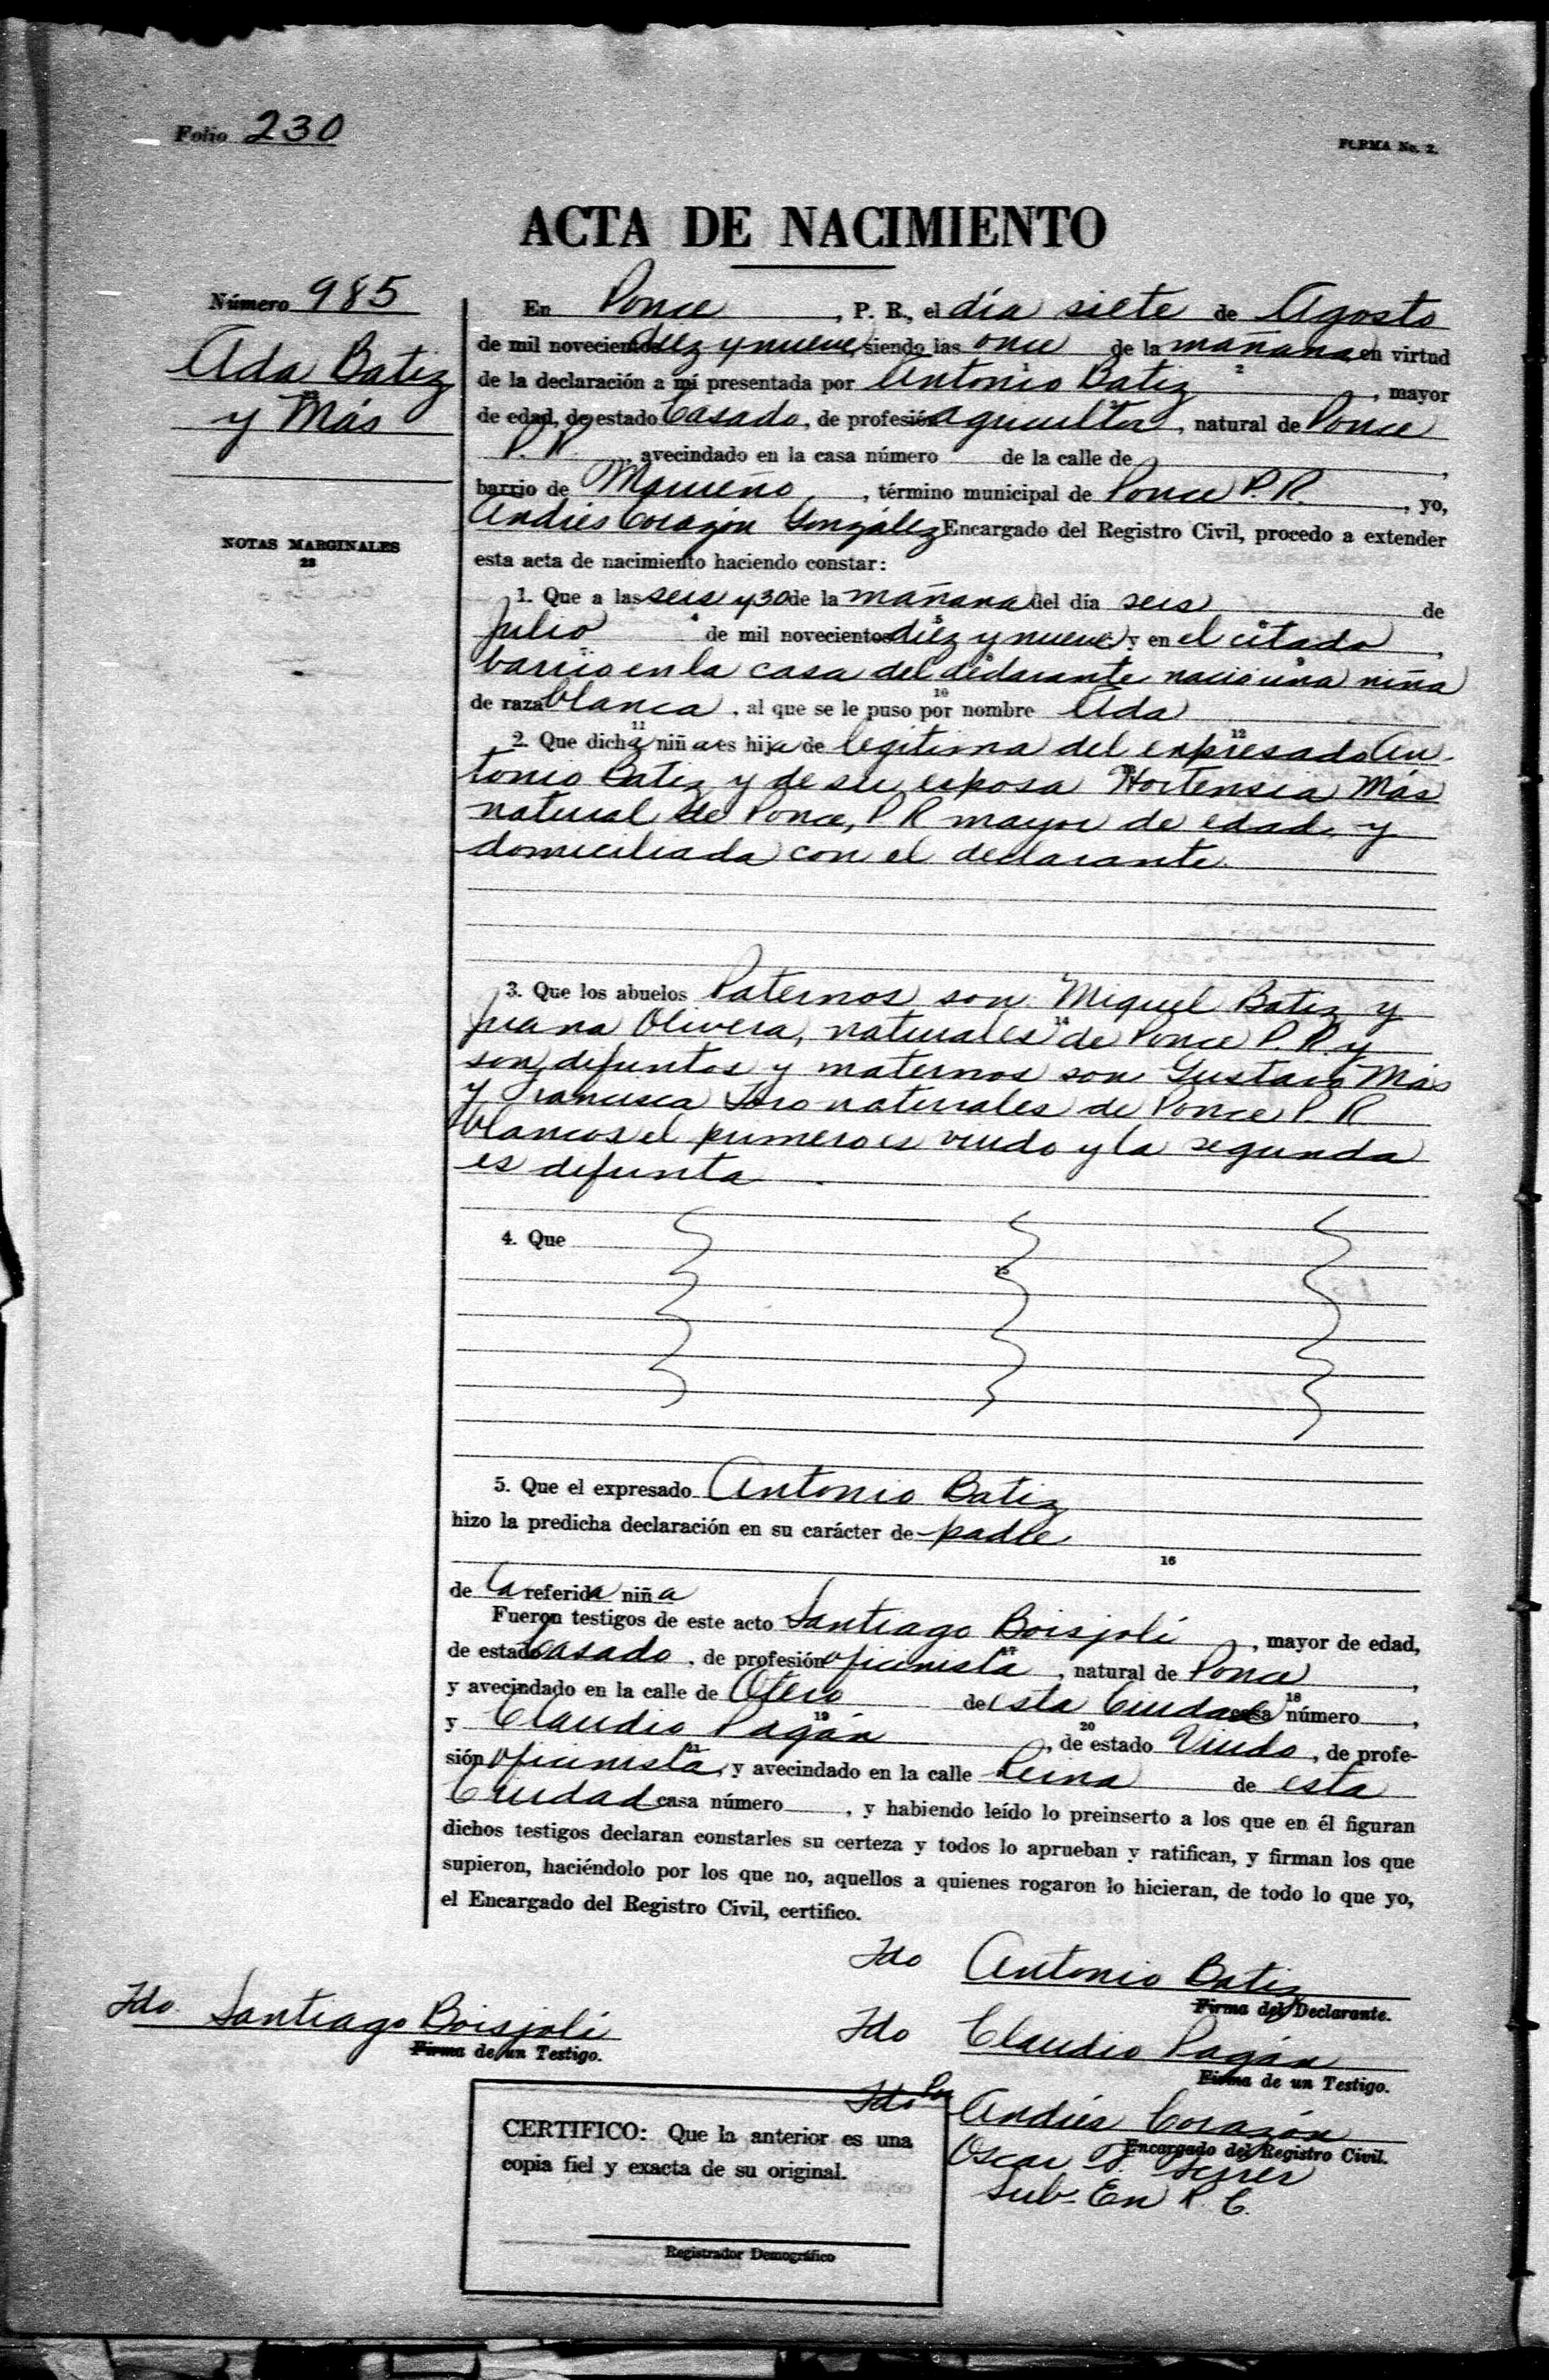 Folio 230
FORMA No. 2.
ACTA DE NACIMIENTO
Número 985
Ada Batiz
y Más
NOTAS MARGINALES
23
En Ponce, P. R., el día siete de Agosto
de mil novecientos diez y nueve, siendo las once de la mañana en virtud
de la declaración a mí presentada por Antonio Batiz, mayor
de edad, de estado Casado, de profesión agricultor, natural de Ponce
P. R., avecindado en la casa número de la calle de ,
barrio de Marueño, término municipal de Ponce P. R., yo,
Andrés Corazón González Encargado del Registro Civil, procedo a extender
esta acta de nacimiento haciendo constar:
1. Que a las seis y 30 de la mañana del día seis de
Julio de mil novecientos diez y nueve y en el citado,
barrio en la casa del declarante nació una niña
de raza blanca, al que se le puso por nombre Ada
2. Que dicha niña es hija de legítima del expresado An-
tonio Batiz y de su esposa Hortensia Más
natural de Ponce, P R mayor de edad y
domiciliada con el declarante.
3. Que los abuelos Paternos son Miguel Batiz y
Juana Olivera, naturales de Ponce P. R. y
son difuntos y maternos son Gustavo Más
y Francisca Toro naturales de Ponce P. R
blancos el primero es viudo y la segunda
es difunta.
4. Que
15
5. Que el expresado Antonio Batiz
hizo la predicha declaración en su carácter de padre
16
de la referida niña
Fueron testigos de este acto Santiago Boisjoli, mayor de edad,
de estado Casado, de profesión oficinista, natural de Ponce,
y avecindado en la calle de Otero de esta Ciudad casa número ,
y Claudio Pagán, de estado Viudo, de profe-
sión oficinista, y avecindado en la calle Reina de esta
Ciudad casa número , y habiendo leído lo preinserto a los que en él figuran
dichos testigos declaran constarles su certeza y todos lo aprueban y ratifican, y firman los que
supieron, haciéndolo por los que no, aquellos a quienes rogaron lo hicieran, de todo lo que yo,
el Encargado del Registro Civil, certifico.
Fdo Antonio Batiz
Firma del Declarante.
Fdo Santiago Boisjoli
Firma de un Testigo.
Fdo Claudio Pagán
Firma de un Testigo.
Fdo Por Andrés Corazón
Encargado del Registro Civil.
Oscar
Sub-En R. C.
CERTIFICO: Que la anterior es una
copia fiel y exacta de su original.
Registrador Demográfico